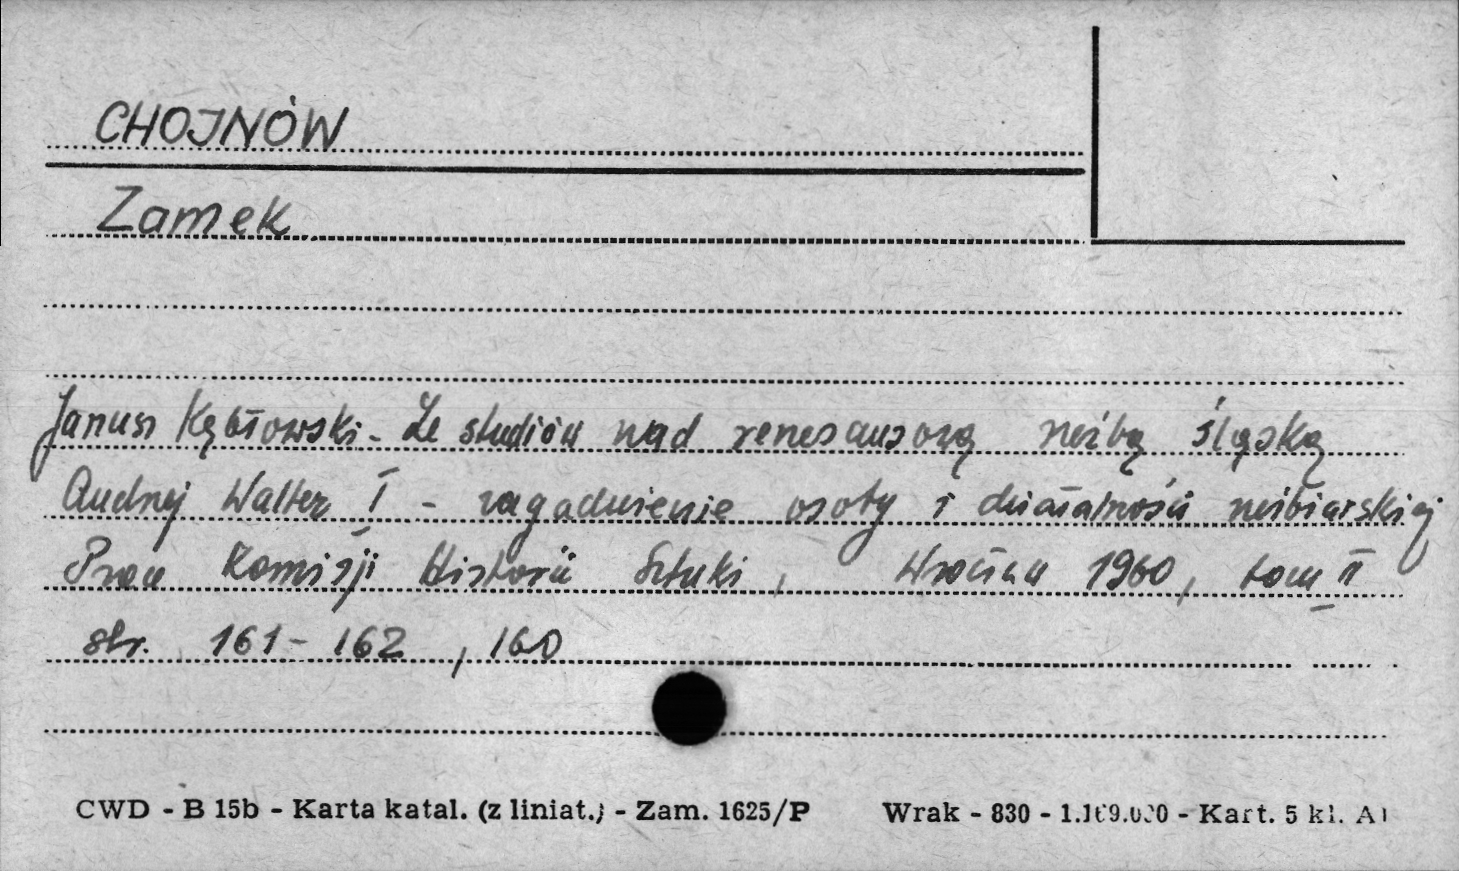 CHOJNÓW
Zamek
Janusz Kębłowski - Ze studiów nad renesansową rzeźbą śląską
Andrzej Walter I - zagadnienie osoby i działalności rzeźbiarskiej
Prace Komisji Historii Sztuki, Wrocław 1960, tom II
str. 161-162, 160
CWD - B 15b - Karta katal. (z liniat.) - Zam. 1625/P Wrak - 830 - - Kart. 5 kl.